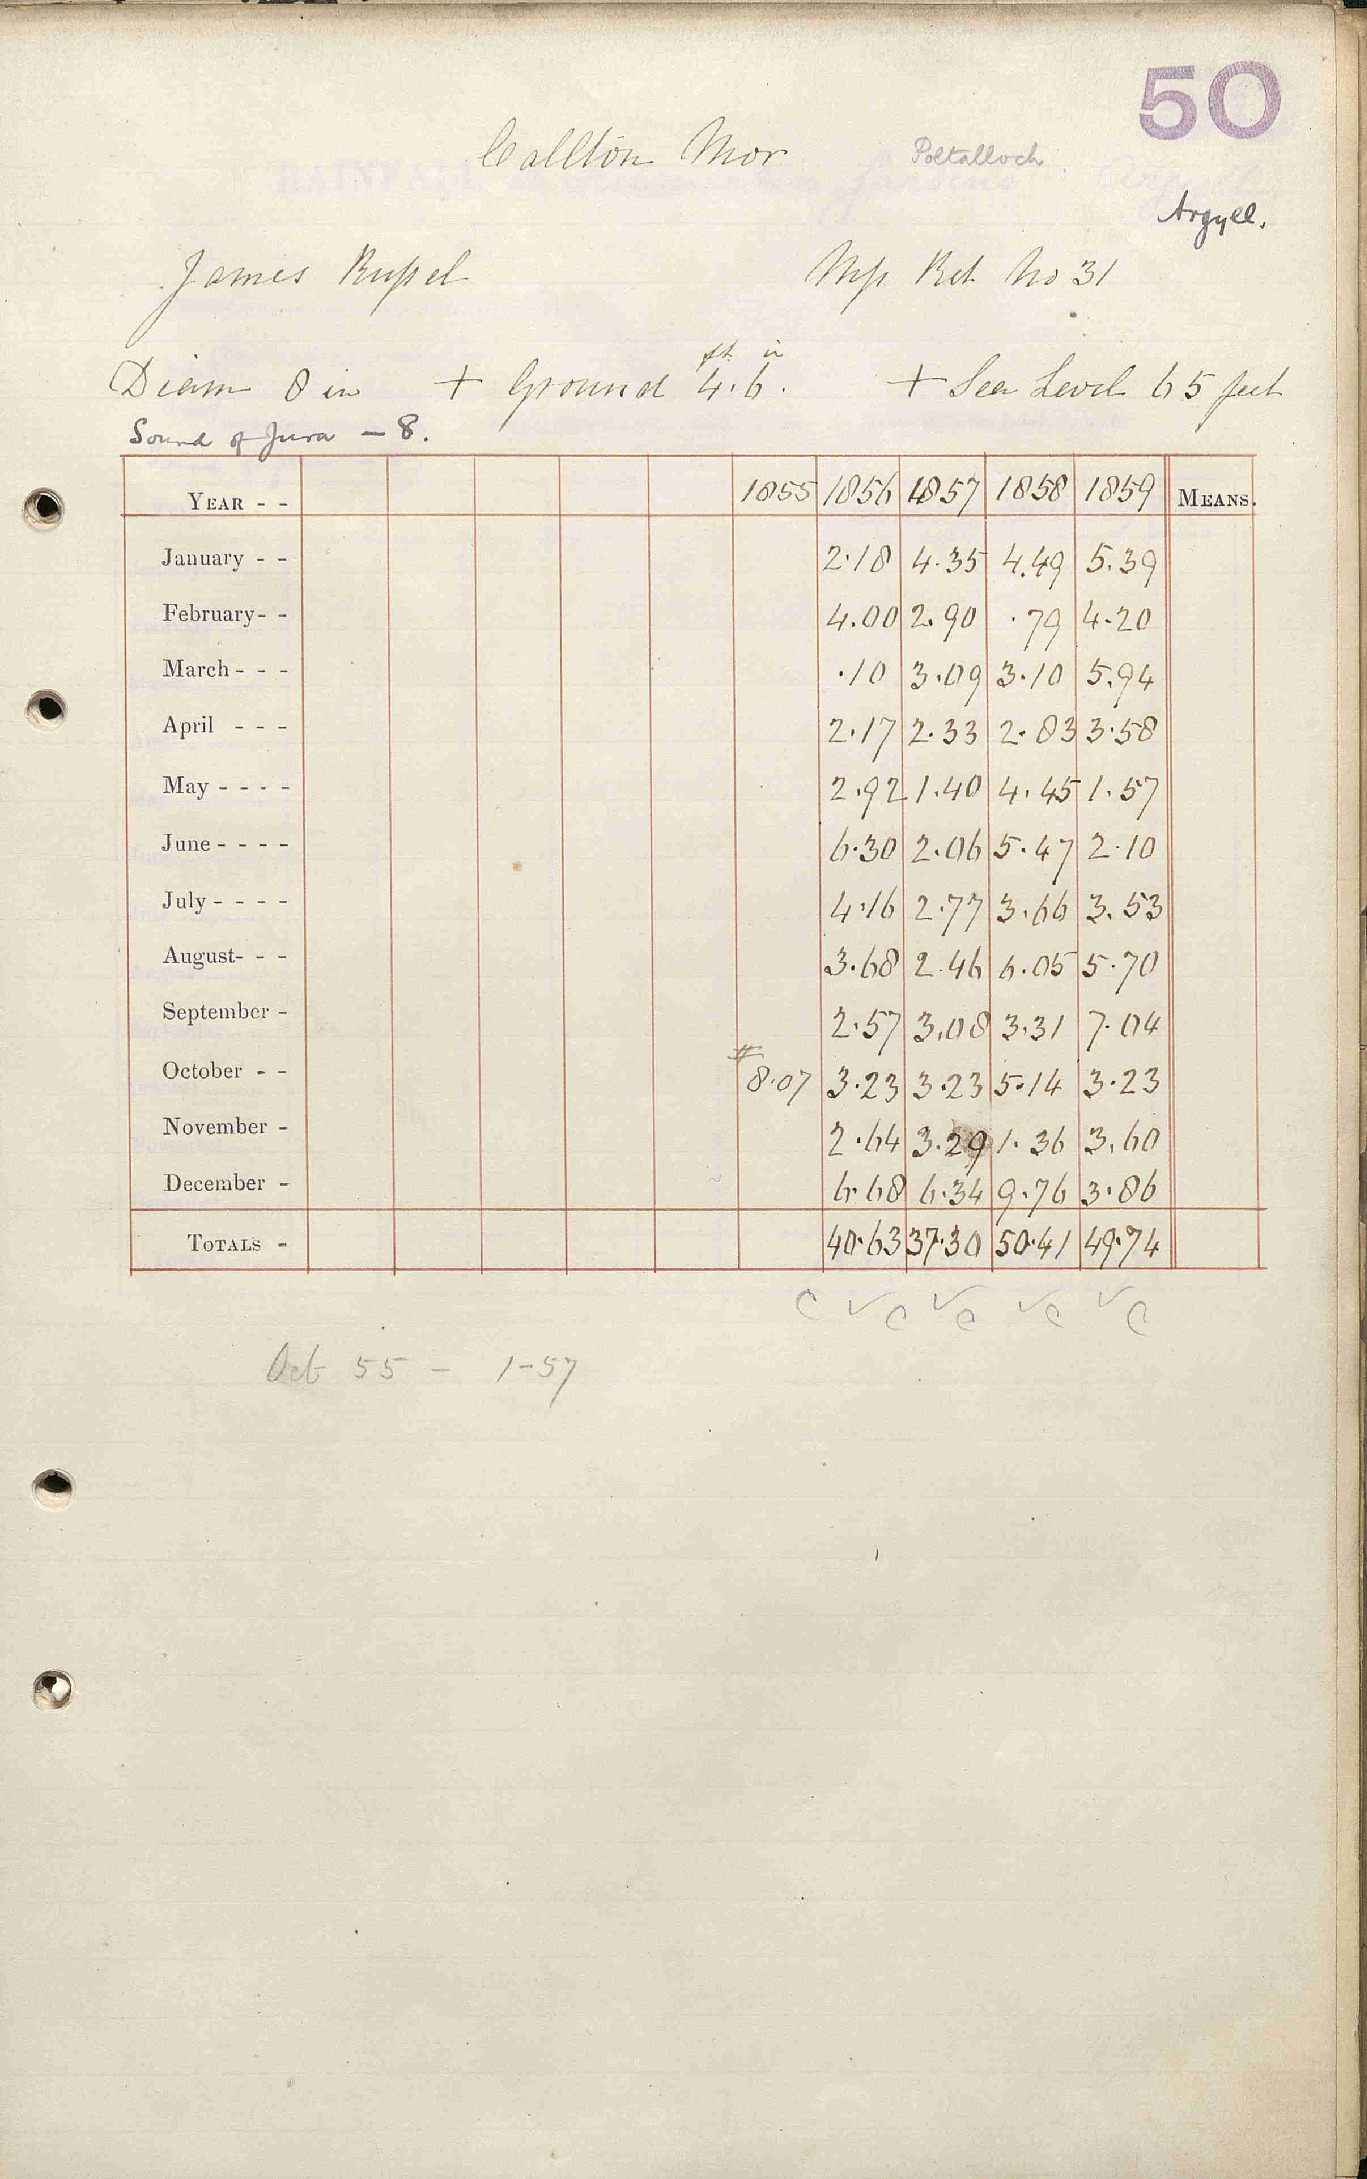 50
Callton Mor Poltalloch
Argyll.
James Rufsel Mfs Ret No 31
ft in
Diam 8 in + Ground 4.6. + Sea Level 65 feet
Sound of Jura - 8.
YEAR - - 1855 1856 1857 1858 1859 MEANS.
January - - 2.18 4.35 4.49 5.39
February - - 4.00 2.90 .79 4.20
March - - - .10 3.09 3.10 5.94
April - - - 2.17 2.33 2.83 3.58
May - - - - 2.92 1.40 4.45 1.57
June - - - - 6.30 2.06 5.47 2.10
July - - - - 4.16 2.77 3.66 3.53
August- - - 3.68 2.46 6.05 5.70
September - 2.57 3.08 3.31 7.04
October - - # 8.07 3.23 3.23 5.14 3.23
November - 2.64 3.29 1.36 3.60
December - 6.68 6.34 9.76 3.86
TOTALS - 40.63 37.30 50.41 49.74
C ✓ C ✓ C ✓ C ✓ C
Oct 55 - 1-57